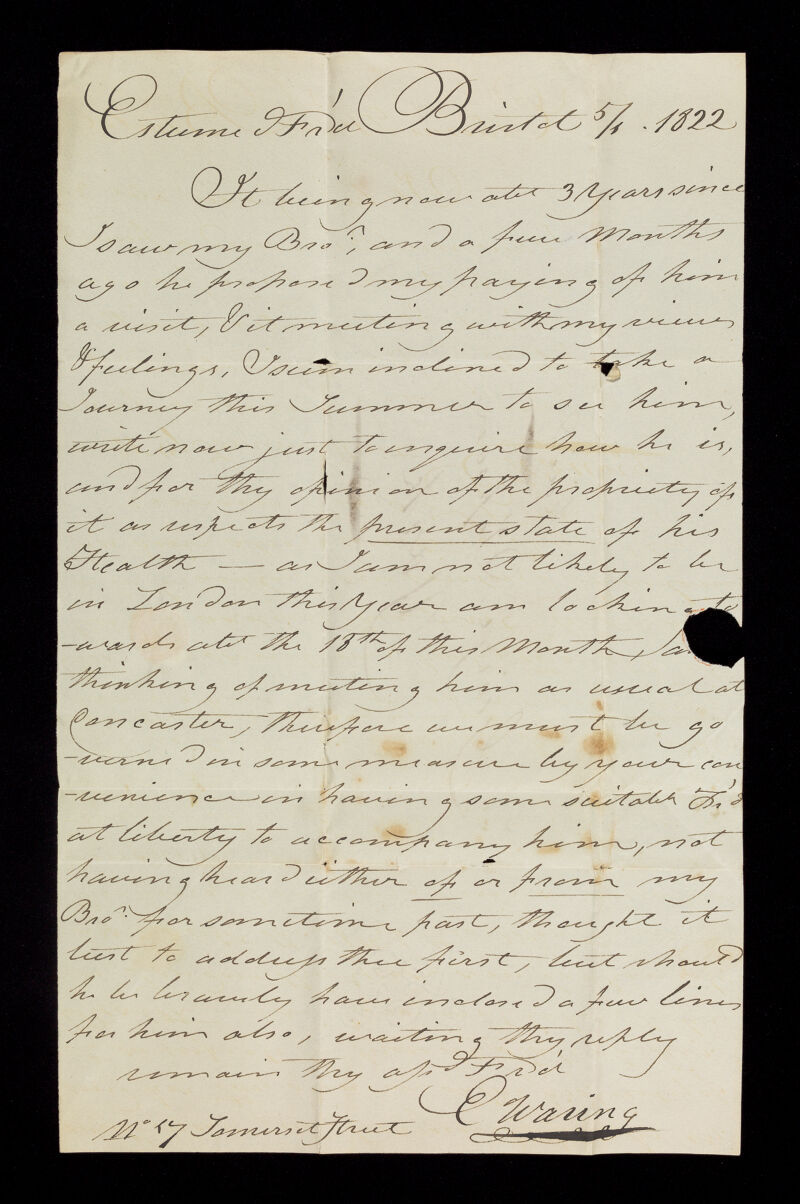 Esteemed Fr'd Bristol 5/6. 1822
It being now abt 3 Years since
I saw my Bror, and a few Months
ago he proposed my paying of him
a visit, & it meeting with my views
& feelings, I seem inclined to take a
Journey this Summer to see him,
write now just to enquire how he is,
and for thy opinion of the propriety of
it as respects the present state of his
Health — as I am not likely to be
in London this Year am looking to
-wards abt the 18th of this Month,
thinking of meeting him as usual at
Doncaster, therefore we must be go
-verned in some measure by your con
-venience in having some suitable Fr'd
at liberty to accompany him, not
having heard either of or from my
Bror. for sometime past, thought it
best to address thee first, but should
he be bravely have inclosed a few lines
for him also, waiting thy reply
remain thy affd Fr'd
E Waring
No 17 Somerset Street